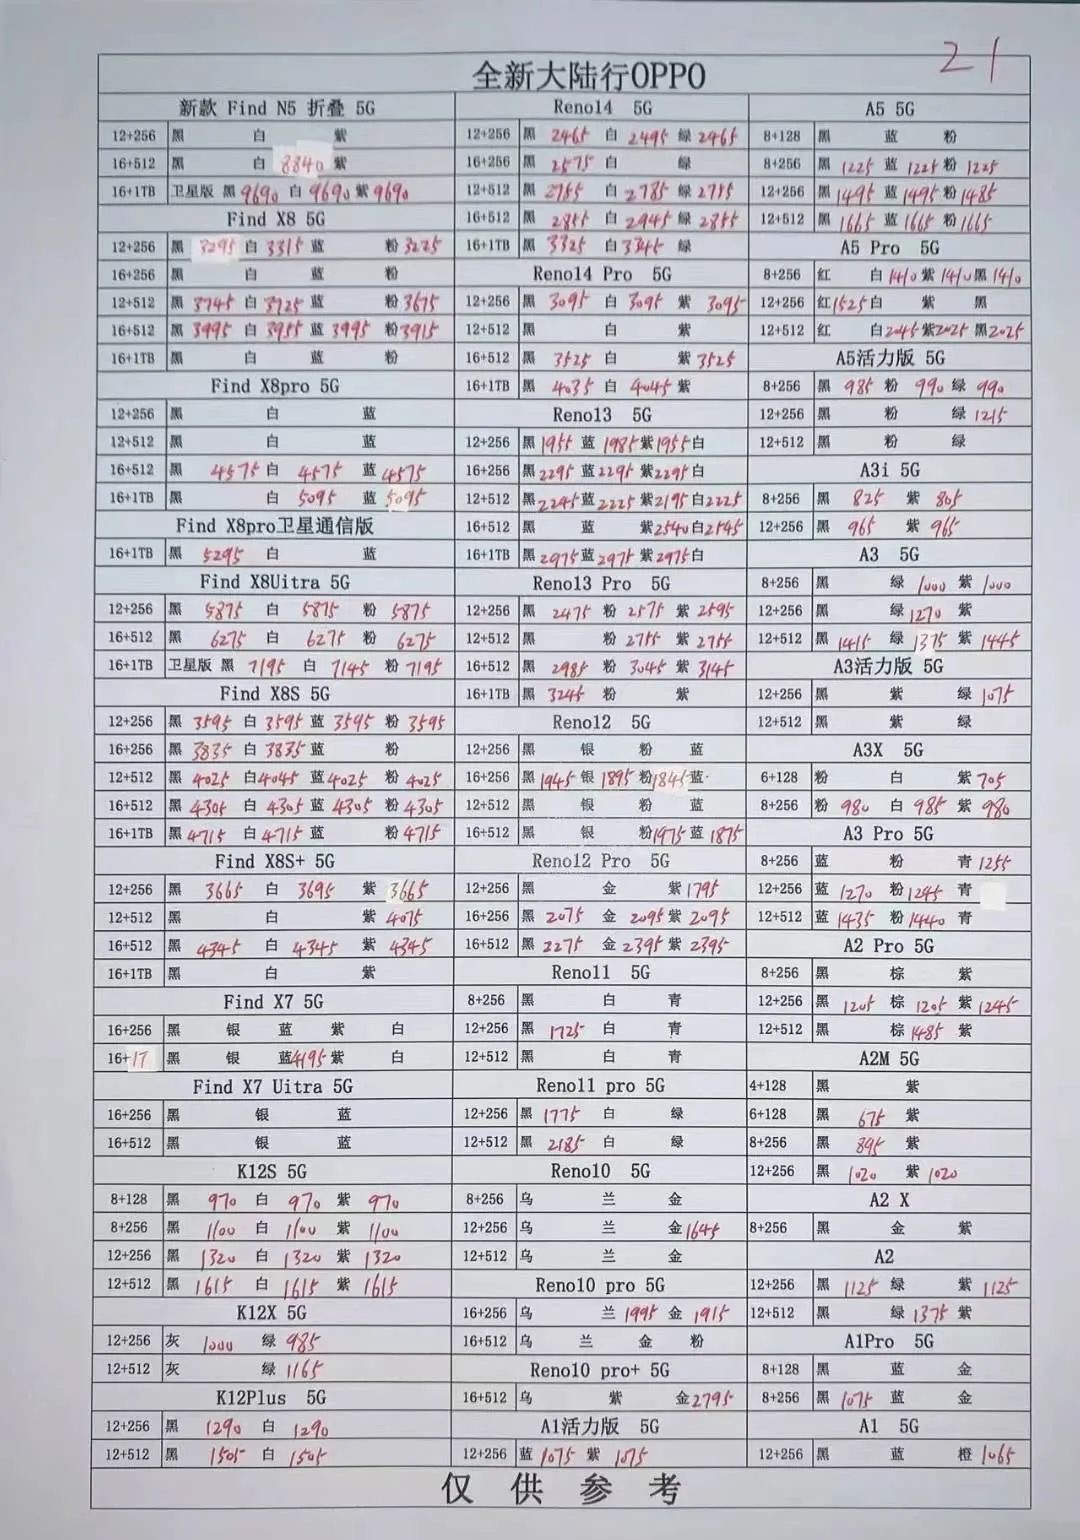 21
全新大陆行OPPO
新款 Find N5 折叠 5G
12+256 黑 白 紫
16+512 黑 白 8840 紫
16+1TB 卫星版 黑 9690 白 9690 紫 9690
Find X8 5G
12+256 黑 3295 白 3315 蓝 粉 3225
16+256 黑 白 蓝 粉
12+512 黑 3745 白 3725 蓝 粉 3675
16+512 黑 3995 白 3955 蓝 3995 粉 3915
16+1TB 黑 白 蓝 粉
Find X8pro 5G
12+256 黑 白 蓝
12+512 黑 白 蓝
16+512 黑 4575 白 4575 蓝 4575
16+1TB 黑 白 5095 蓝 5095
Find X8pro卫星通信版
16+1TB 黑 5295 白 蓝
Find X8Uitra 5G
12+256 黑 5875 白 5875 粉 5875
16+512 黑 6275 白 6275 粉 6275
16+1TB 卫星版 黑 7195 白 7145 粉 7195
Find X8S 5G
12+256 黑 3595 白 3595 蓝 3595 粉 3595
16+256 黑 3835 白 3835 蓝 粉
12+512 黑 4025 白 4045 蓝 4025 粉 4025
16+512 黑 4305 白 4305 蓝 4305 粉 4305
16+1TB 黑 4715 白 4715 蓝 粉 4715
Find X8S+ 5G
12+256 黑 3665 白 3695 紫 3665
12+512 黑 白 紫 4075
16+512 黑 4345 白 4345 紫 4345
16+1TB 黑 白 紫
Find X7 5G
16+256 黑 银 蓝 紫 白
16+1T 黑 银 蓝 4195 紫 白
Find X7 Uitra 5G
16+256 黑 银 蓝
16+512 黑 银 蓝
K12S 5G
8+128 黑 970 白 970 紫 970
8+256 黑 1100 白 1100 紫 1100
12+256 黑 1320 白 1320 紫 1320
12+512 黑 1615 白 1615 紫 1615
K12X 5G
12+256 灰 1000 绿 985
12+512 灰 绿 1165
K12Plus 5G
12+256 黑 1290 白 1290
12+512 黑 1505 白 1505
Reno14 5G
12+256 黑 2465 白 2495 绿 2465
16+256 黑 2575 白 绿
12+512 黑 2755 白 2785 绿 2755
16+512 黑 2855 白 2945 绿 2855
16+1TB 黑 3325 白 3345 绿
Reno14 Pro 5G
12+256 黑 3095 白 3095 紫 3095
12+512 黑 白 紫
16+512 黑 3525 白 紫 3525
16+1TB 黑 4035 白 4045 紫
Reno13 5G
12+256 黑 1955 蓝 1985 紫 1955 白
16+256 黑 2295 蓝 2295 紫 2295 白
12+512 黑 2245 蓝 2225 紫 2195 白 2225
16+512 黑 蓝 紫 2540 白 2545
16+1TB 黑 2975 蓝 2975 紫 2975 白
Reno13 Pro 5G
12+256 黑 2475 粉 2575 紫 2595
12+512 黑 粉 2755 紫 2755
16+512 黑 2985 粉 3045 紫 3145
16+1TB 黑 3245 粉 紫
Reno12 5G
12+256 黑 银 粉 蓝
16+256 黑 1945 银 1895 粉 1845 蓝
12+512 黑 银 粉 蓝
16+512 黑 银 粉 1975 蓝 1875
Reno12 Pro 5G
12+256 黑 金 紫 1795
16+256 黑 2075 金 2095 紫 2095
16+512 黑 2275 金 2395 紫 2395
Reno11 5G
8+256 黑 白 青
12+256 黑 1725 白 青
12+512 黑 白 青
Reno11 pro 5G
12+256 黑 1775 白 绿
12+512 黑 2185 白 绿
Reno10 5G
8+256 乌 兰 金
12+256 乌 兰 金 1645
12+512 乌 兰 金
Reno10 pro 5G
16+256 乌 兰 1995 金 1915
16+512 乌 兰 金 粉
Reno10 pro+ 5G
16+512 乌 紫 金 2795
A1活力版 5G
12+256 蓝 1075 紫 1075
A5 5G
8+128 黑 蓝 粉
8+256 黑 1225 蓝 1225 粉 1225
12+256 黑 1495 蓝 1495 粉 1485
12+512 黑 1665 蓝 1665 粉 1665
A5 Pro 5G
8+256 红 白 1410 紫 1410 黑 1410
12+256 红 1525 白 紫 黑
12+512 红 白 2045 紫 2025 黑 2025
A5活力版 5G
8+256 黑 985 粉 990 绿 990
12+256 黑 粉 绿 1215
12+512 黑 粉 绿
A3i 5G
8+256 黑 825 紫 805
12+256 黑 965 紫 965
A3 5G
8+256 黑 绿 1000 紫 1000
12+256 黑 绿 1270 紫
12+512 黑 1415 绿 1375 紫 1445
A3活力版 5G
12+256 黑 紫 绿 1075
12+512 黑 紫 绿
A3X 5G
6+128 粉 白 紫 705
8+256 粉 980 白 985 紫 980
A3 Pro 5G
8+256 蓝 粉 青 1255
12+256 蓝 1270 粉 1245 青
12+512 蓝 1435 粉 1440 青
A2 Pro 5G
8+256 黑 棕 紫
12+256 黑 1205 棕 1205 紫 1245
12+512 黑 棕 1485 紫
A2M 5G
4+128 黑 紫
6+128 黑 675 紫
8+256 黑 895 紫
12+256 黑 1020 紫 1020
A2 X
8+256 黑 金 紫
A2
12+256 黑 1125 绿 紫 1125
12+512 黑 绿 1375 紫
A1Pro 5G
8+128 黑 蓝 金
8+256 黑 1075 蓝 金
A1 5G
12+256 黑 蓝 橙 1065
仅供参考